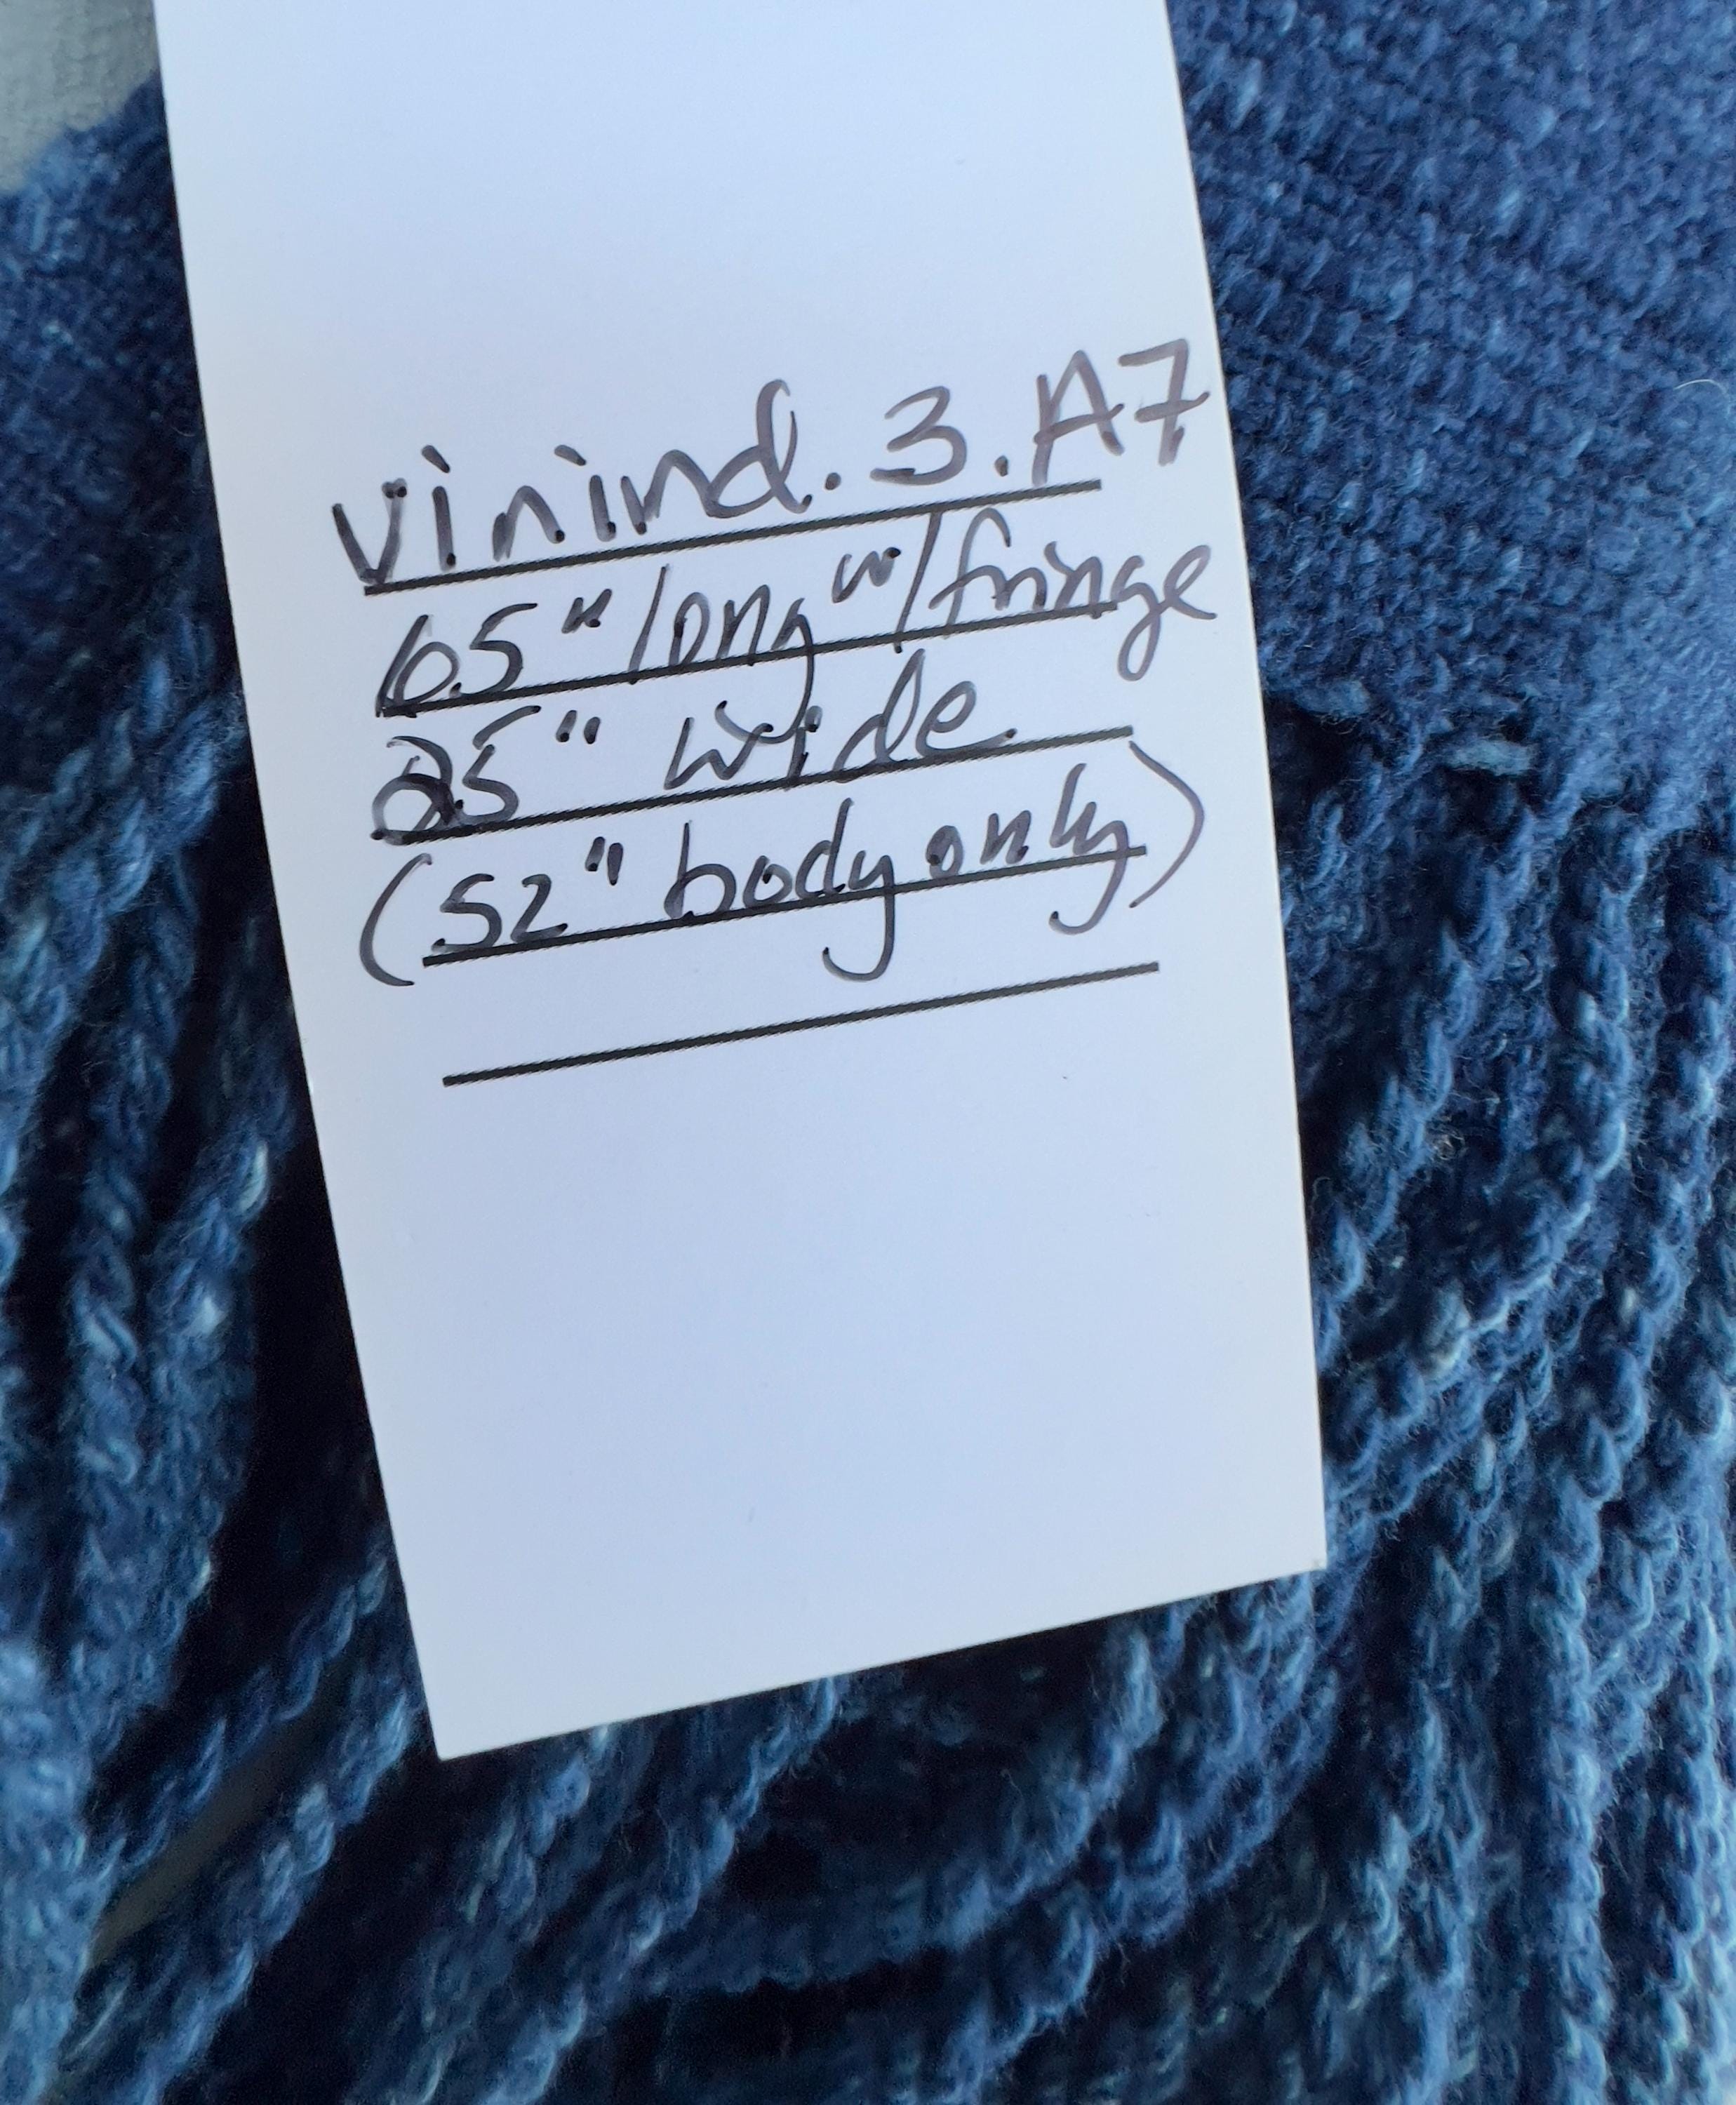 Vinind.3.A7
65" long w/fringe
25" wide
(52" body only)